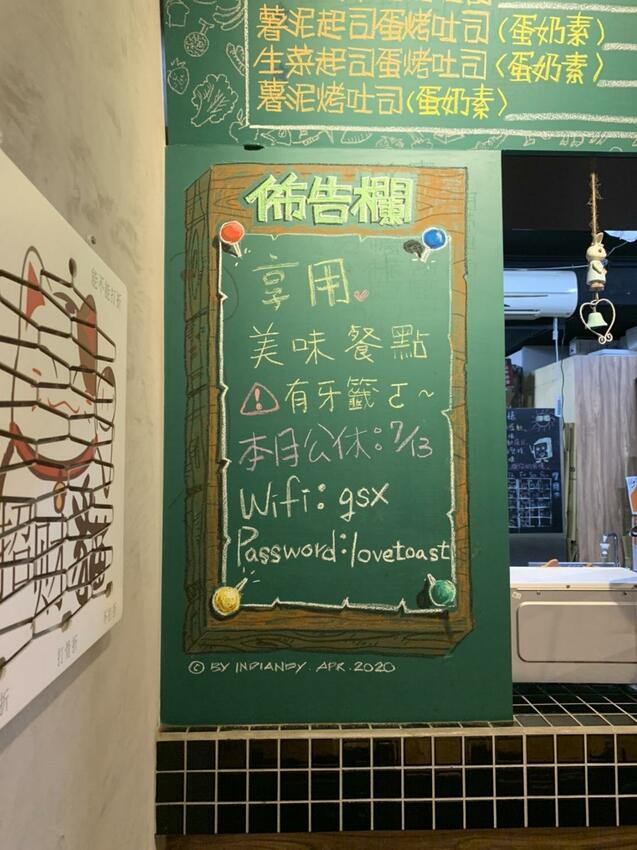 薯泥起司蛋烤吐司(蛋奶素)
生菜起司蛋烤吐司(蛋奶素)
薯泥烤吐司(蛋奶素)
佈告欄
享用
美味餐點
有牙籤ㄛ~
本月公休:7/13
Wifi: gsx
Password:lovetoast
© BY INDIANDY. APR. 2020
能不能打折
打骨折
不打折
折